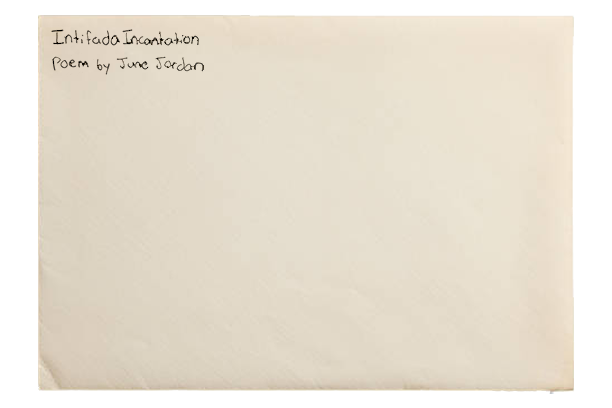 Intifada Incantation
Poem by June Jordan